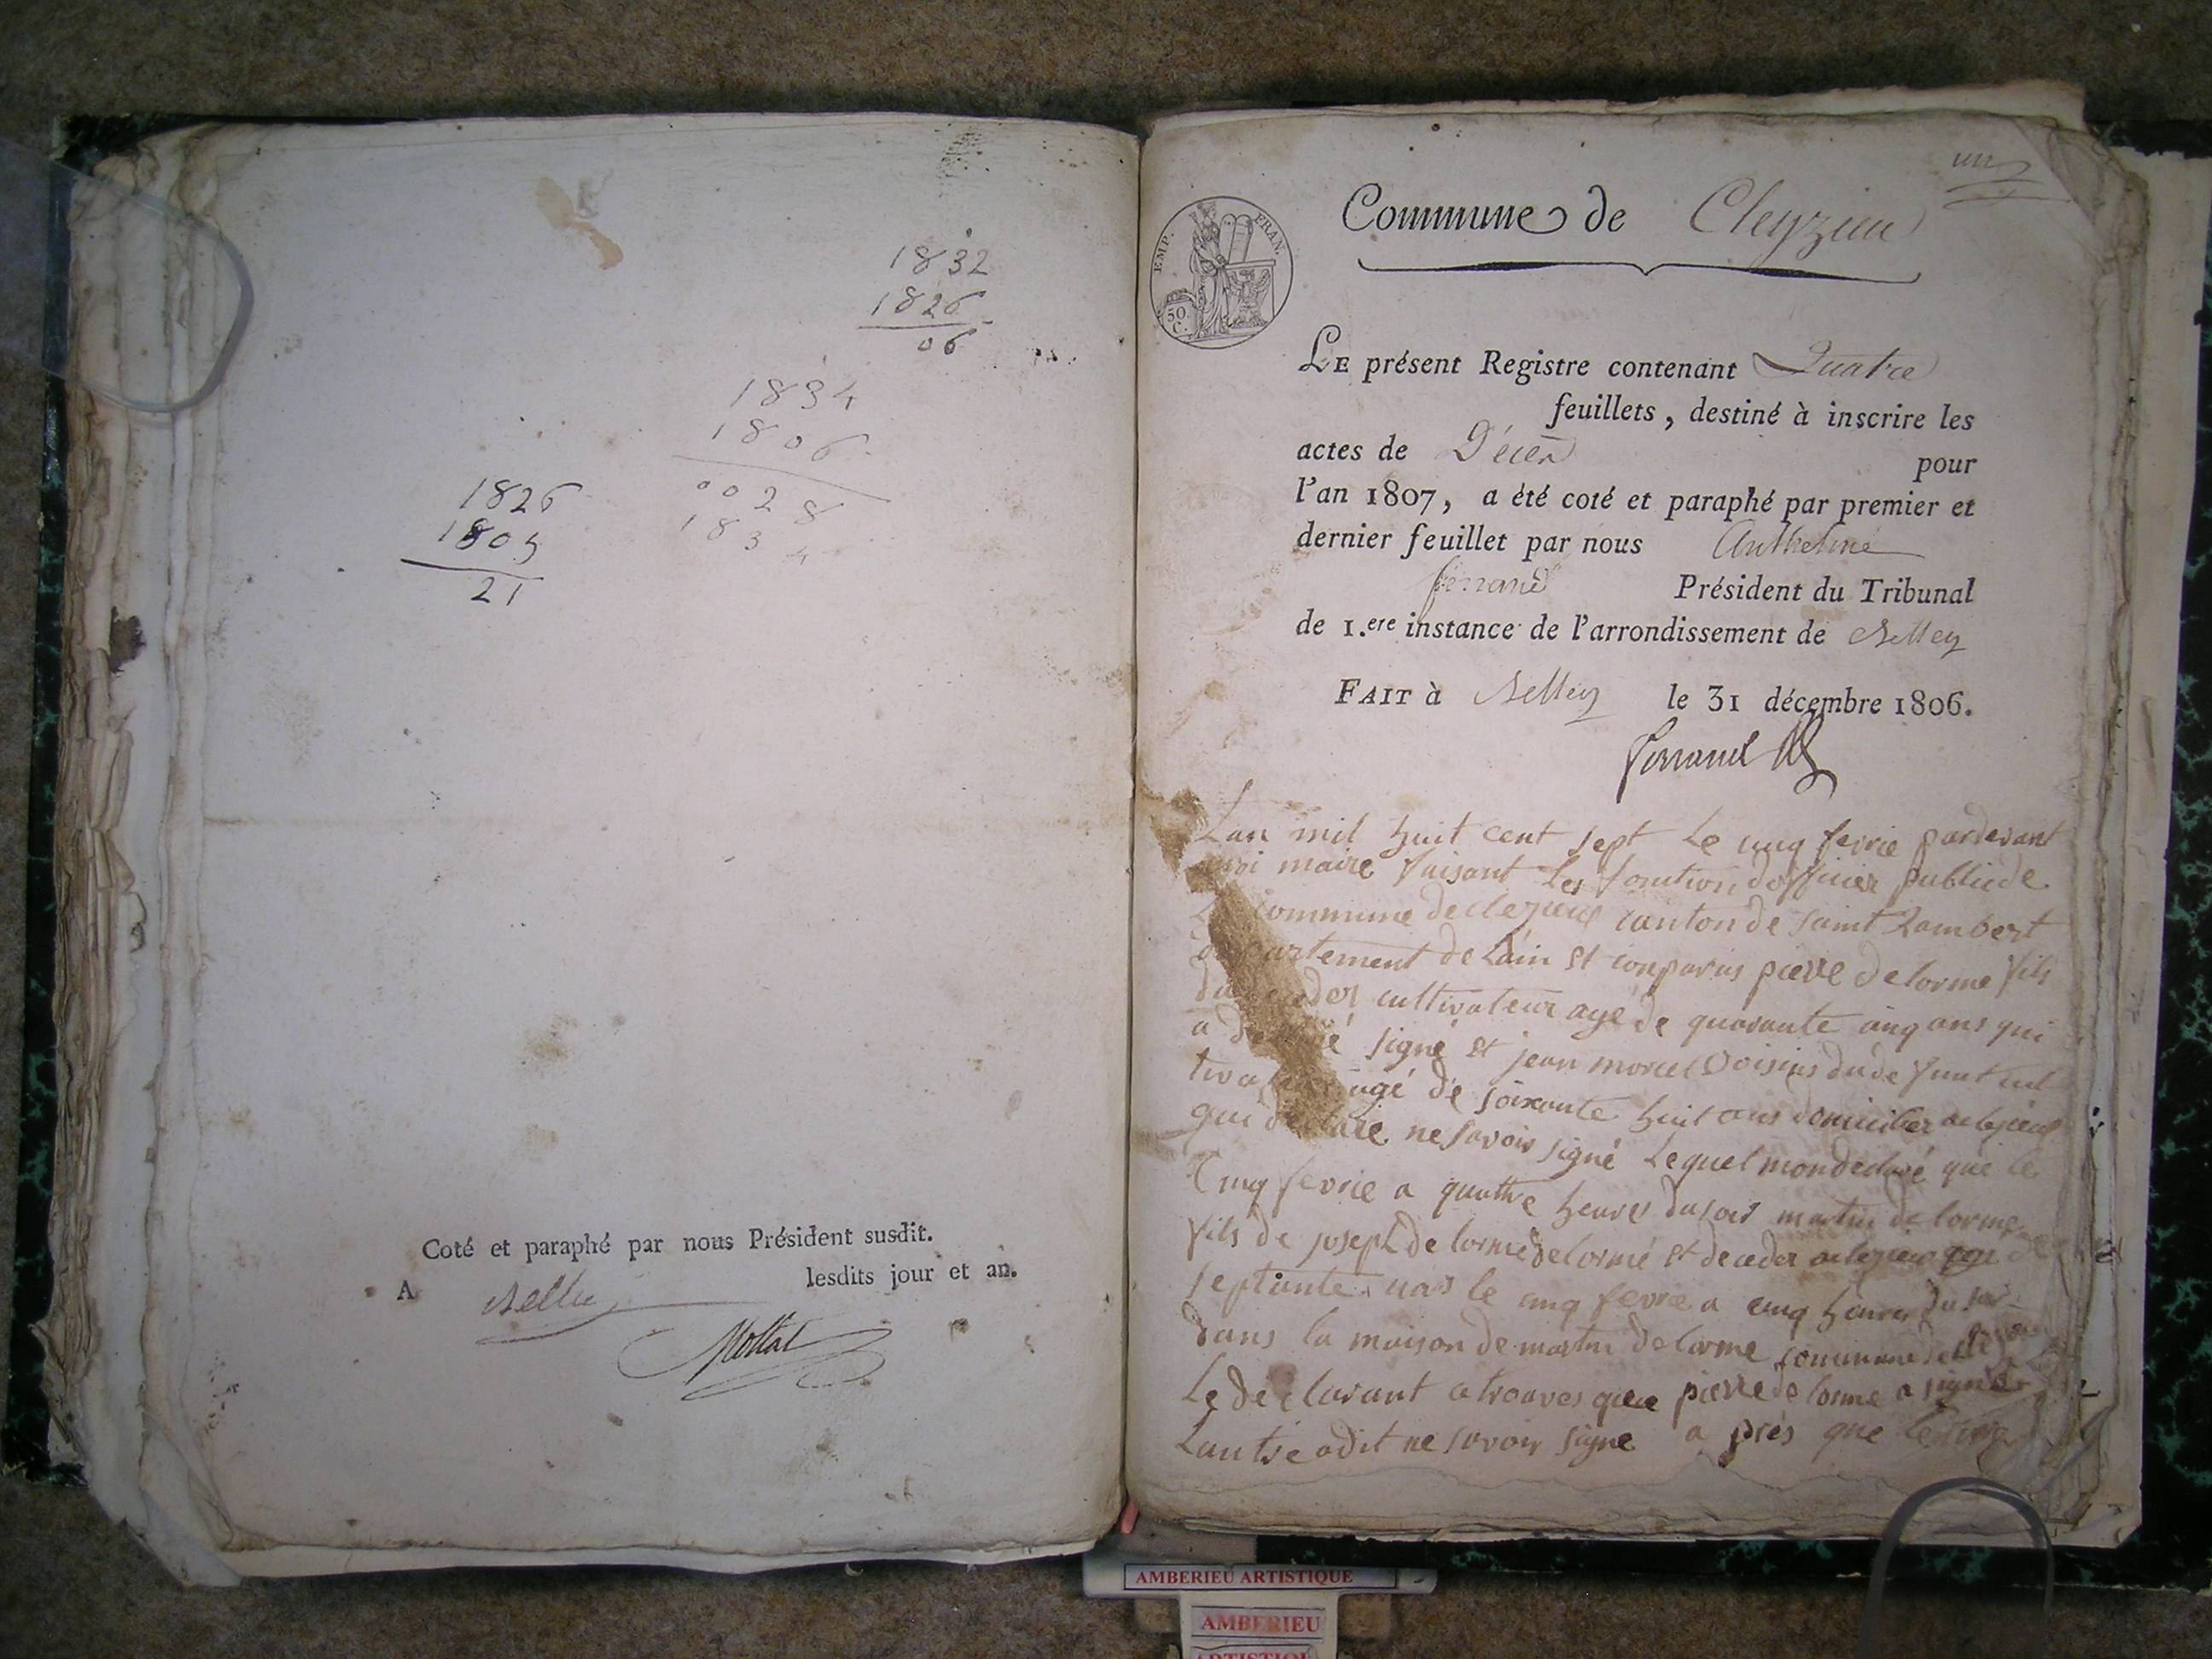 1832
1826
06
1834
1806
0028
1834
1826
1805
21
Coté et paraphé par nous Président susdit.
A Belley lesdits jour et an.
un
Commune de Cleyzieu
EMP. FRAN.
50.
C.
LE présent Registre contenant Quatre
feuillets, destiné à inscrire les
actes de Décès pour
l'an 1807, a été coté et paraphé par premier et
dernier feuillet par nous Anthelme
ferrand Président du Tribunal
de 1.ere instance de l'arrondissement de Belley
FAIT à Belley le 31 décembre 1806.
ferrand
Lan mil huit cent sept Le cinq fevrie pardevant
moi maire faisant Les fonction dofficier publicde
La commune de clezieux canton de saint Rambert
departement de Lain et conparus pierre delorme fils
du cultivateur agé de quarante cinq ans qui
a signé et jean morcel voisins du defunt cul
tivateur agé de soixante huit ans domicilier aclezieux
qui declare ne savoir signé Lequel mon declaré que le
Cinq fevrie a quattre heures du soir martin de lorme
fils de joseph de lorme delorme et deceder aclezieux
septante le cinq fevrie a cinq heures du soir
dans la maison de martin delorme commune de
Le declarant a trouves que pierre de lorme a signé
Lautre adit ne savoir signe a prés que
AMBERIEU ARTISTIQUE
AMBERIEU
ARTISTIQU